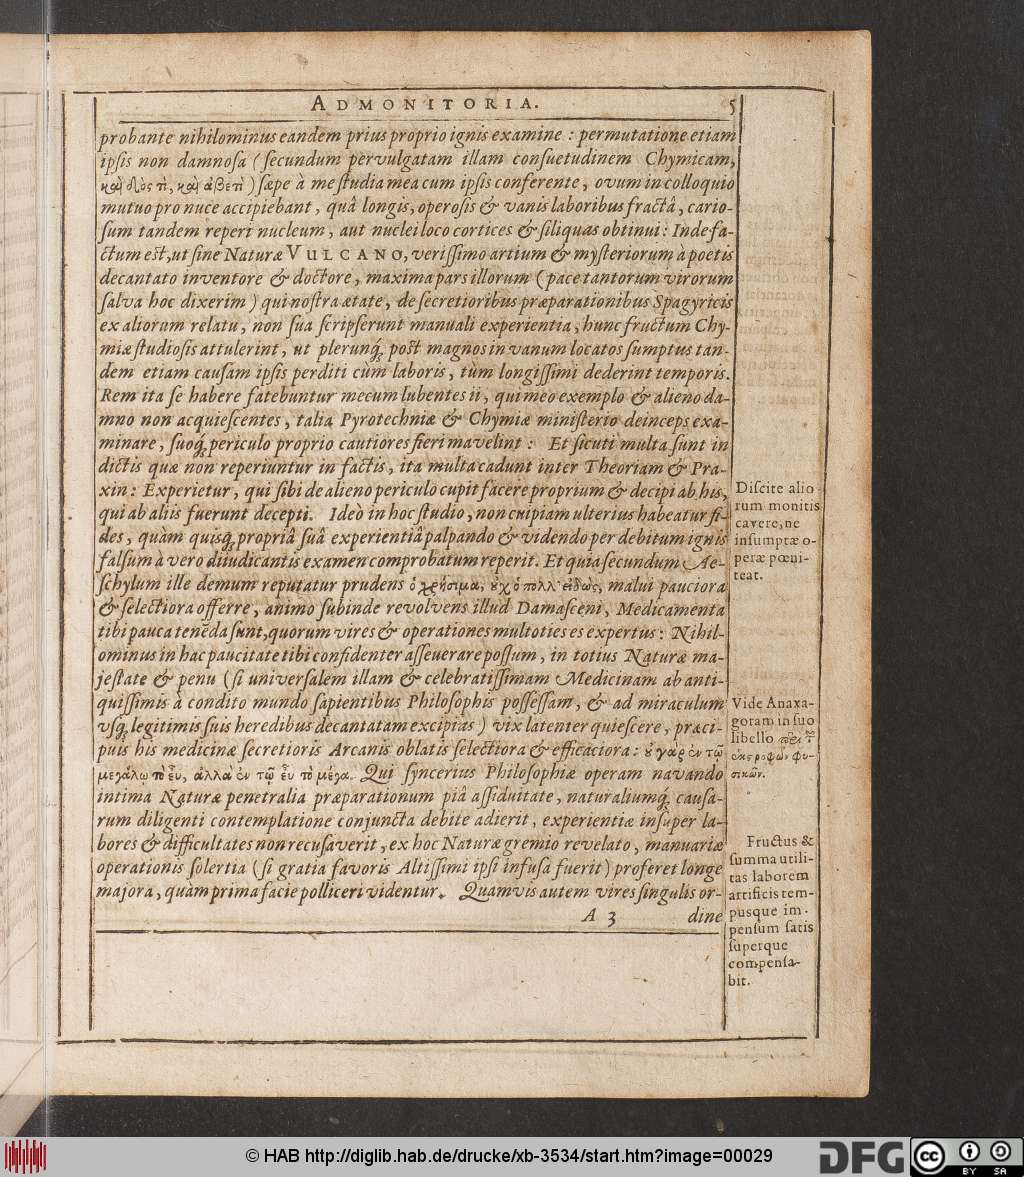 ADMONITORIA. 5
probante nihilominus eandem prius proprio ignis examine : permutatione etiam
ipsis non damnosa ( secundum pervulgatam illam consuetudinem Chymicam,
καὶ δός τι, καὶ ) sæpe à me studia mea cum ipsis conferente, ovum in colloquio
mutuo pro nuce accipiebant, quâ longis, operosis & vanis laboribus fractâ, cario-
sum tandem reperi nucleum, aut nuclei loco cortices & siliquas obtinui : Inde fa-
ctum est, ut sine Naturæ VULCANO, verissimo artium & mysteriorum à poetis
decantato inventore & doctore, maxima pars illorum (pace tantorum virorum
salva hoc dixerim ) qui nostra ætate, de secretioribus præparationibus Spagyricis
ex aliorum relatu, non sua scripserunt manuali experientia, hunc fructum Chy-
miæ studiosis attulerint, ut plerunq́; post magnos in vanum locatos sumptus tan-
dem etiam causam ipsis perditi cùm laboris, tùm longissimi dederint temporis.
Rem ita se habere fatebuntur mecum lubentes ii, qui meo exemplo & alieno da-
mno non acquiescentes, talia Pyrotechniæ & Chymiæ ministerio deinceps exa-
minare, suoq́; periculo proprio cautiores fieri mavelint : Et sicuti multa sunt in
dictis quæ non reperiuntur in factis, ita multa cadunt inter Theoriam & Pra-
xin : Experietur, qui sibi de alieno periculo cupit facere proprium & decipi ab his,
qui ab aliis fuerunt decepti. Ideò in hoc studio, non cuipiam ulterius habeatur fi-
des, quàm quisq́; propriâ suâ experientiâ palpando & videndo per debitum ignis
falsum à vero diiudicantis examen comprobatum reperit. Et quia secundum Ae-
schylum ille demum reputatur prudens ὁ χρήσιμα, οὐχ ὁ πολλ' εἰδὼς, malui pauciora
& selectiora offerre, animo subinde revolvens illud Damasceni, Medicamenta
tibi pauca tenēda sunt, quorum vires & operationes multoties es expertus : Nihil-
ominus in hac paucitate tibi confidenter asseverare possum, in totius Naturæ ma-
jestate & penu (si universalem illam & celebratissimam Medicinam ab anti-
quissimis à condito mundo sapientibus Philosophis possessam, & ad miraculum
usq́; legitimis suis heredibus decantatam excipias ) vix latenter quiescere, præci-
puis his medicinæ secretioris Arcanis oblatis selectiora & efficaciora : οὐ γὰρ ἐν τῷ
μεγάλῳ τὸ εὖ, ἀλλὰ ἐν τῷ εὖ τὸ μέγα. Qui syncerius Philosophiæ operam navando
intima Naturæ penetralia præparationum piâ assiduitate, naturaliumq́; causa-
rum diligenti contemplatione conjuncta debite adierit, experientiæ insuper la-
bores & difficultates non recusaverit, ex hoc Naturæ gremio revelato, manuariæ
operationis solertia (si gratia favoris Altissimi ipsi infusa fuerit) proferet longe
majora, quàm prima facie polliceri videntur. Quamvis autem vires singulis or-
A 3 dine
Discite alio
rum monitis
cavere, ne
insumptæ o-
peræ pœni-
teat.
Vide Anaxa-
goram in suo
libello περὶ τ̃
ἐκτροφῶν φυ-
σικῶν.
Fructus &
summa utili-
tas laborem
artificis tem-
pusque im-
pensum satis
superque
compensa-
bit.
© HAB http://diglib.hab.de/drucke/xb-3534/start.htm?image=00029
DFG
cc BY SA